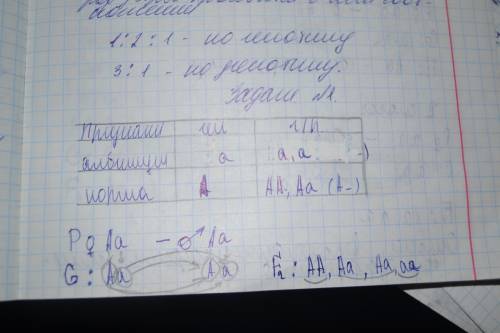 1:2:1 - по генотипу
3:1 - по фенотипу.
Задача №1.
Признаки ген г/п
альбинизм а а, а
норма А АА, Аа (А-)
P ♀ Аа - ♂ Аа
G: Аа Аа F₂: АА, Аа, Аа, аа